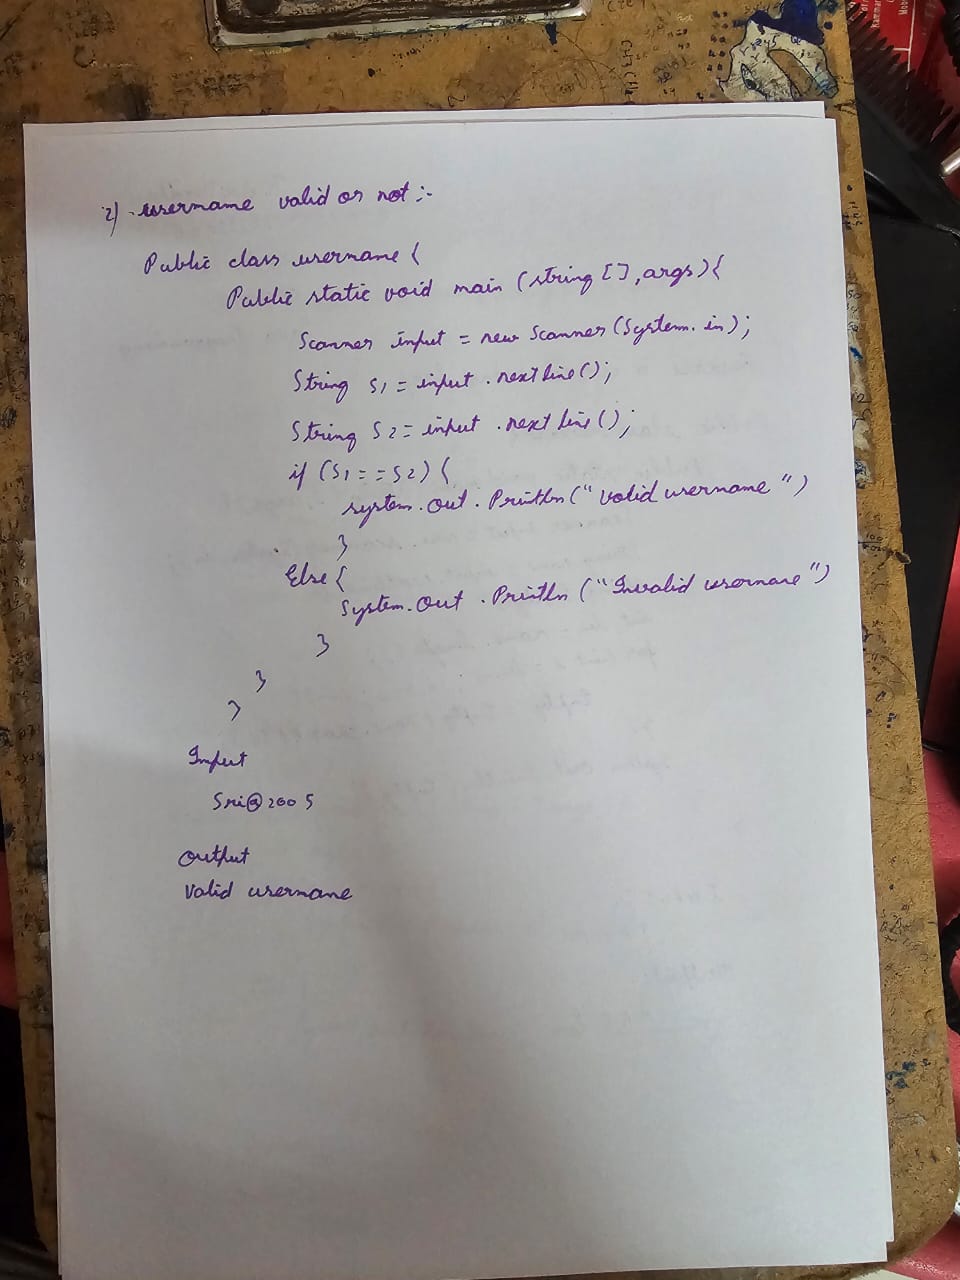 2) username valid or not :-
Public class username {
Public static void main (string [], args) {
Scanner input = new Scanner (System. in);
String s1 = input . next line ();
String s2 = input . next line ();
if (s1 = = s2) {
system. out . Println (" valid username ")
}
Else {
System. out . Println ("Invalid username")
}
}
}
Input
Sri@2005
output
Valid username